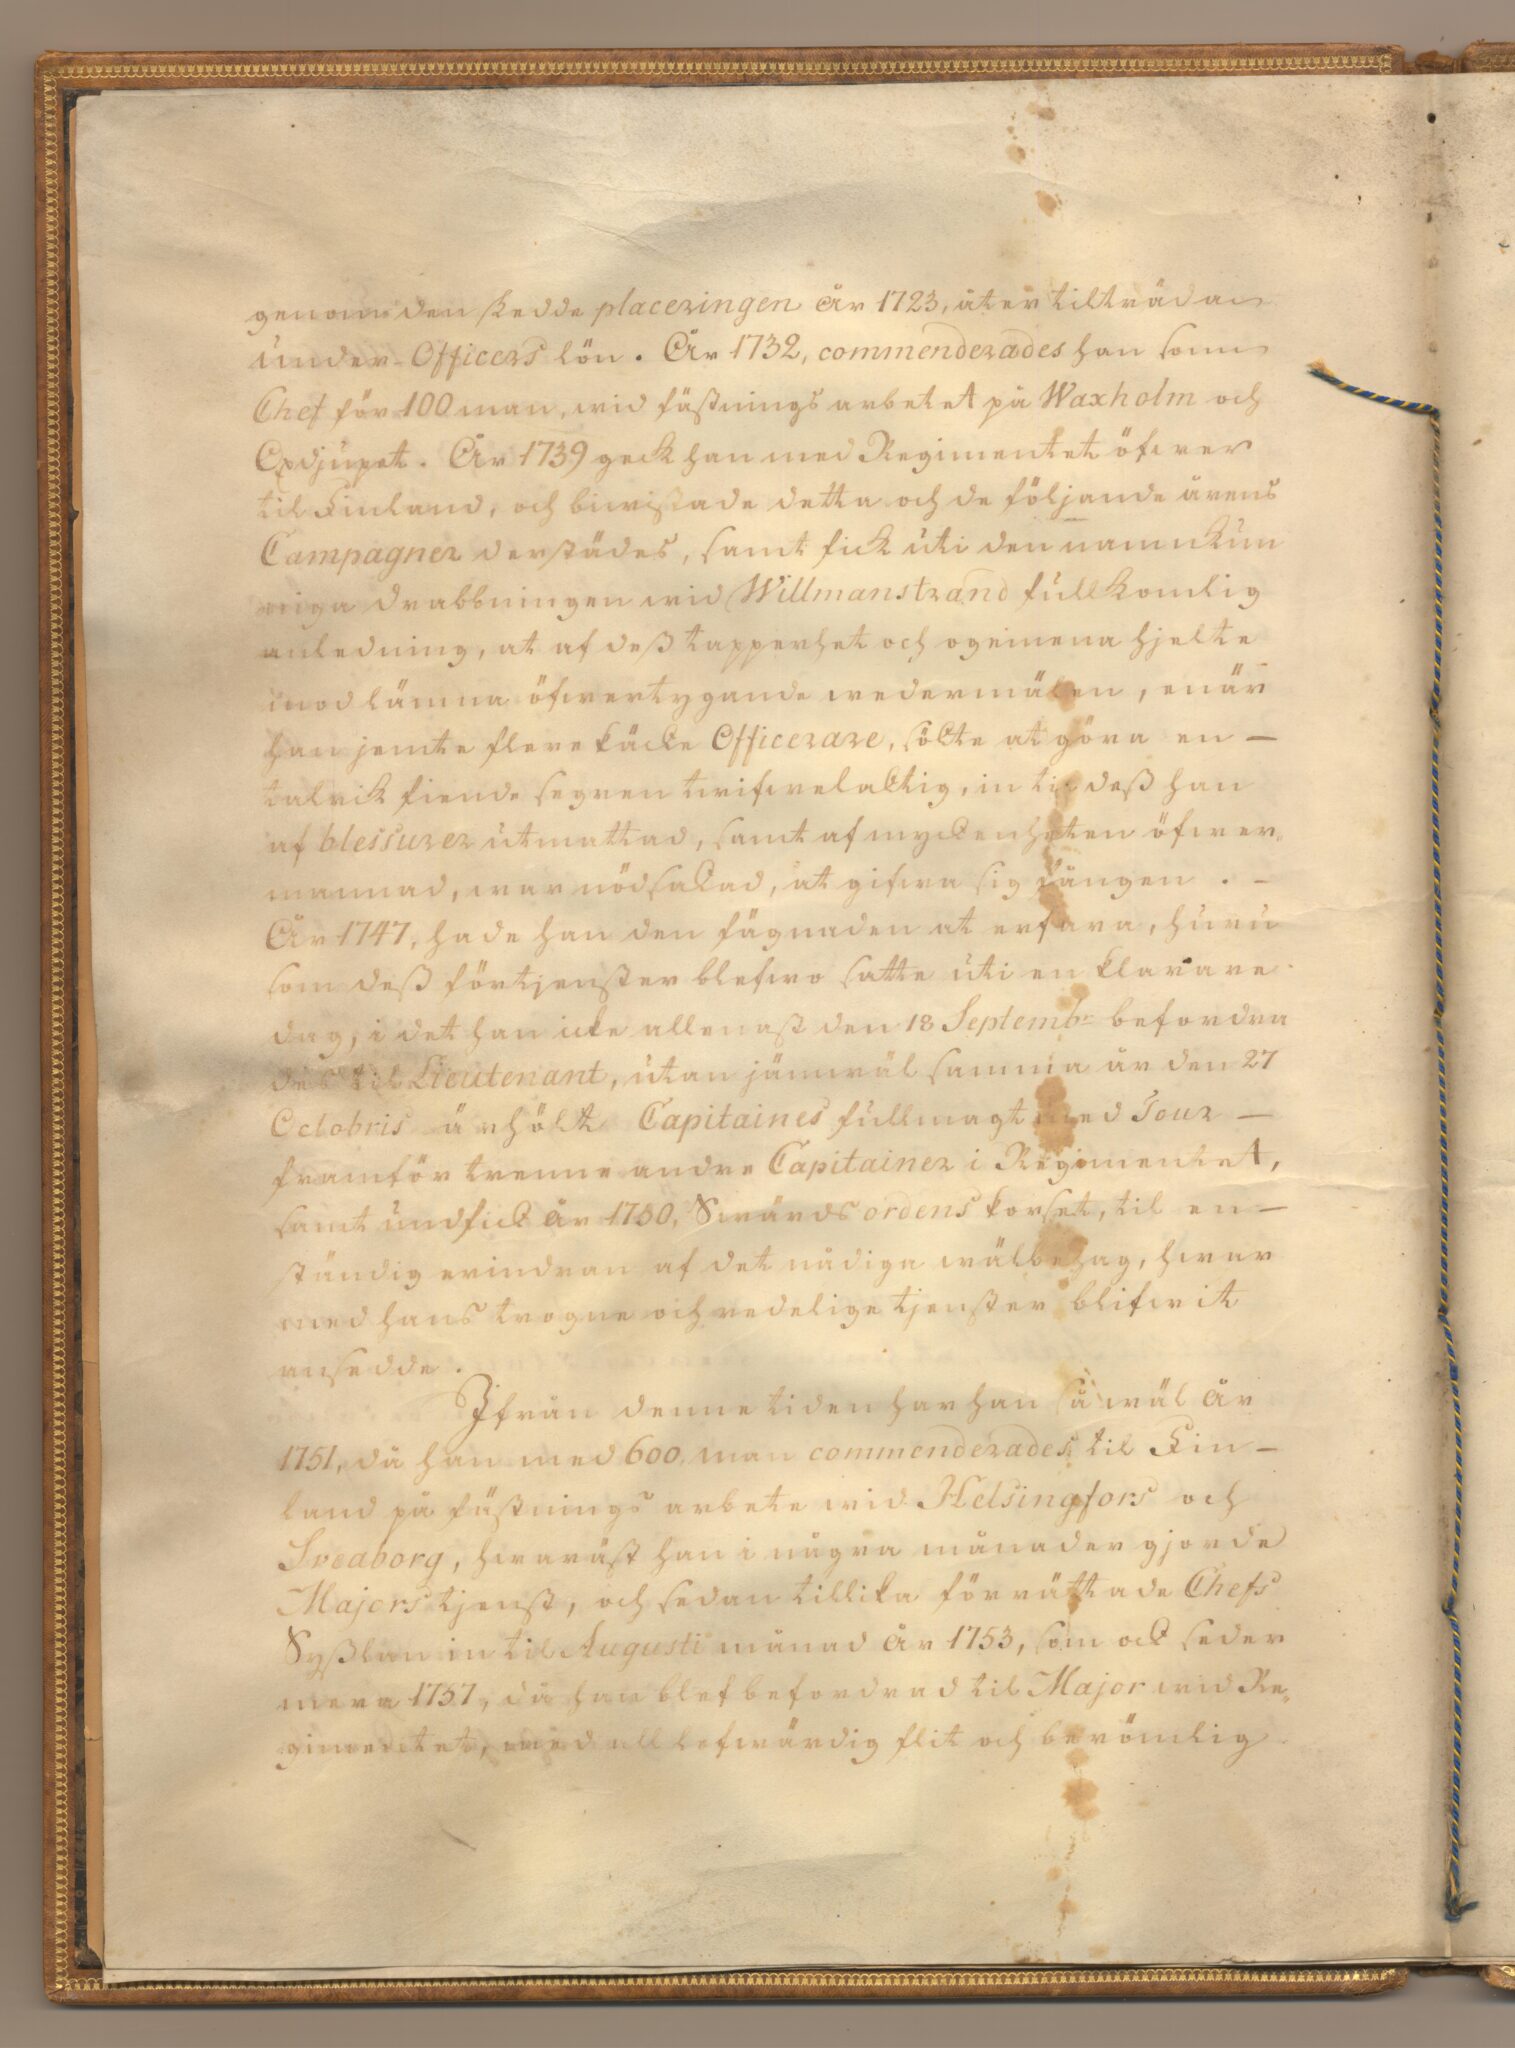 genom den skedde placeringen År 1723, åter tilträda
under-Officers lön. År 1732, commenderades han som
Chef för 100 man, wid fästnings arbetet på Waxholm och
Oxdjupet. År 1739 geck han med Regimentet öfwer
til Finland, och biwistade detta och de följande årens
Campagner derstädes, samt fick uti den namnkun
niga drabbningen wid Willmanstrand fullkomlig
anledning, at af deß tapperhet och ogemena hjelte
mod lämna öfwertygande wedermälen, enär
han jemte flere käcke Officerare, sökte at göra en —
talrik fiende segren twifwelaktig, in til deß han
af blessurer utmattad, samt af myckenheten öfwer-
mannad, war nödsakad, at gifwa sig fången. –
År 1747, hade han den fägnaden at erfara, huru
som deß förtjenster blefwo satte uti en klarare
dag, i det han icke allenast den 18 Septembr befordra
des til Lieutenant, utan jämwäl samma år den 27
Octobris ärhölt Capitaines fullmagt med Tour —
framför trenne andre Capitainer i Regimentet,
samt undfick År 1750, Swärds ordens korset, til en —
ständig erindran af det nådiga wälbehag, hwar
med hans trogne och redelige tjenster blifwit
ansedde.
Ifrån denne tiden har han så wäl År
1751, då han med 600 man commenderades til Fin —
land på fästnings arbete wid Helsingfors och
Sveaborg, hwaräst han i några månader gjorde
Majors tjenst, och sedan tillika förrättade Chefs
Syßlan in til Augusti månad År 1753, som ock seder
mera 1757, då han blef befordrad til Major wid Re-
gimentet, med all lofwärdig flit och berömlig